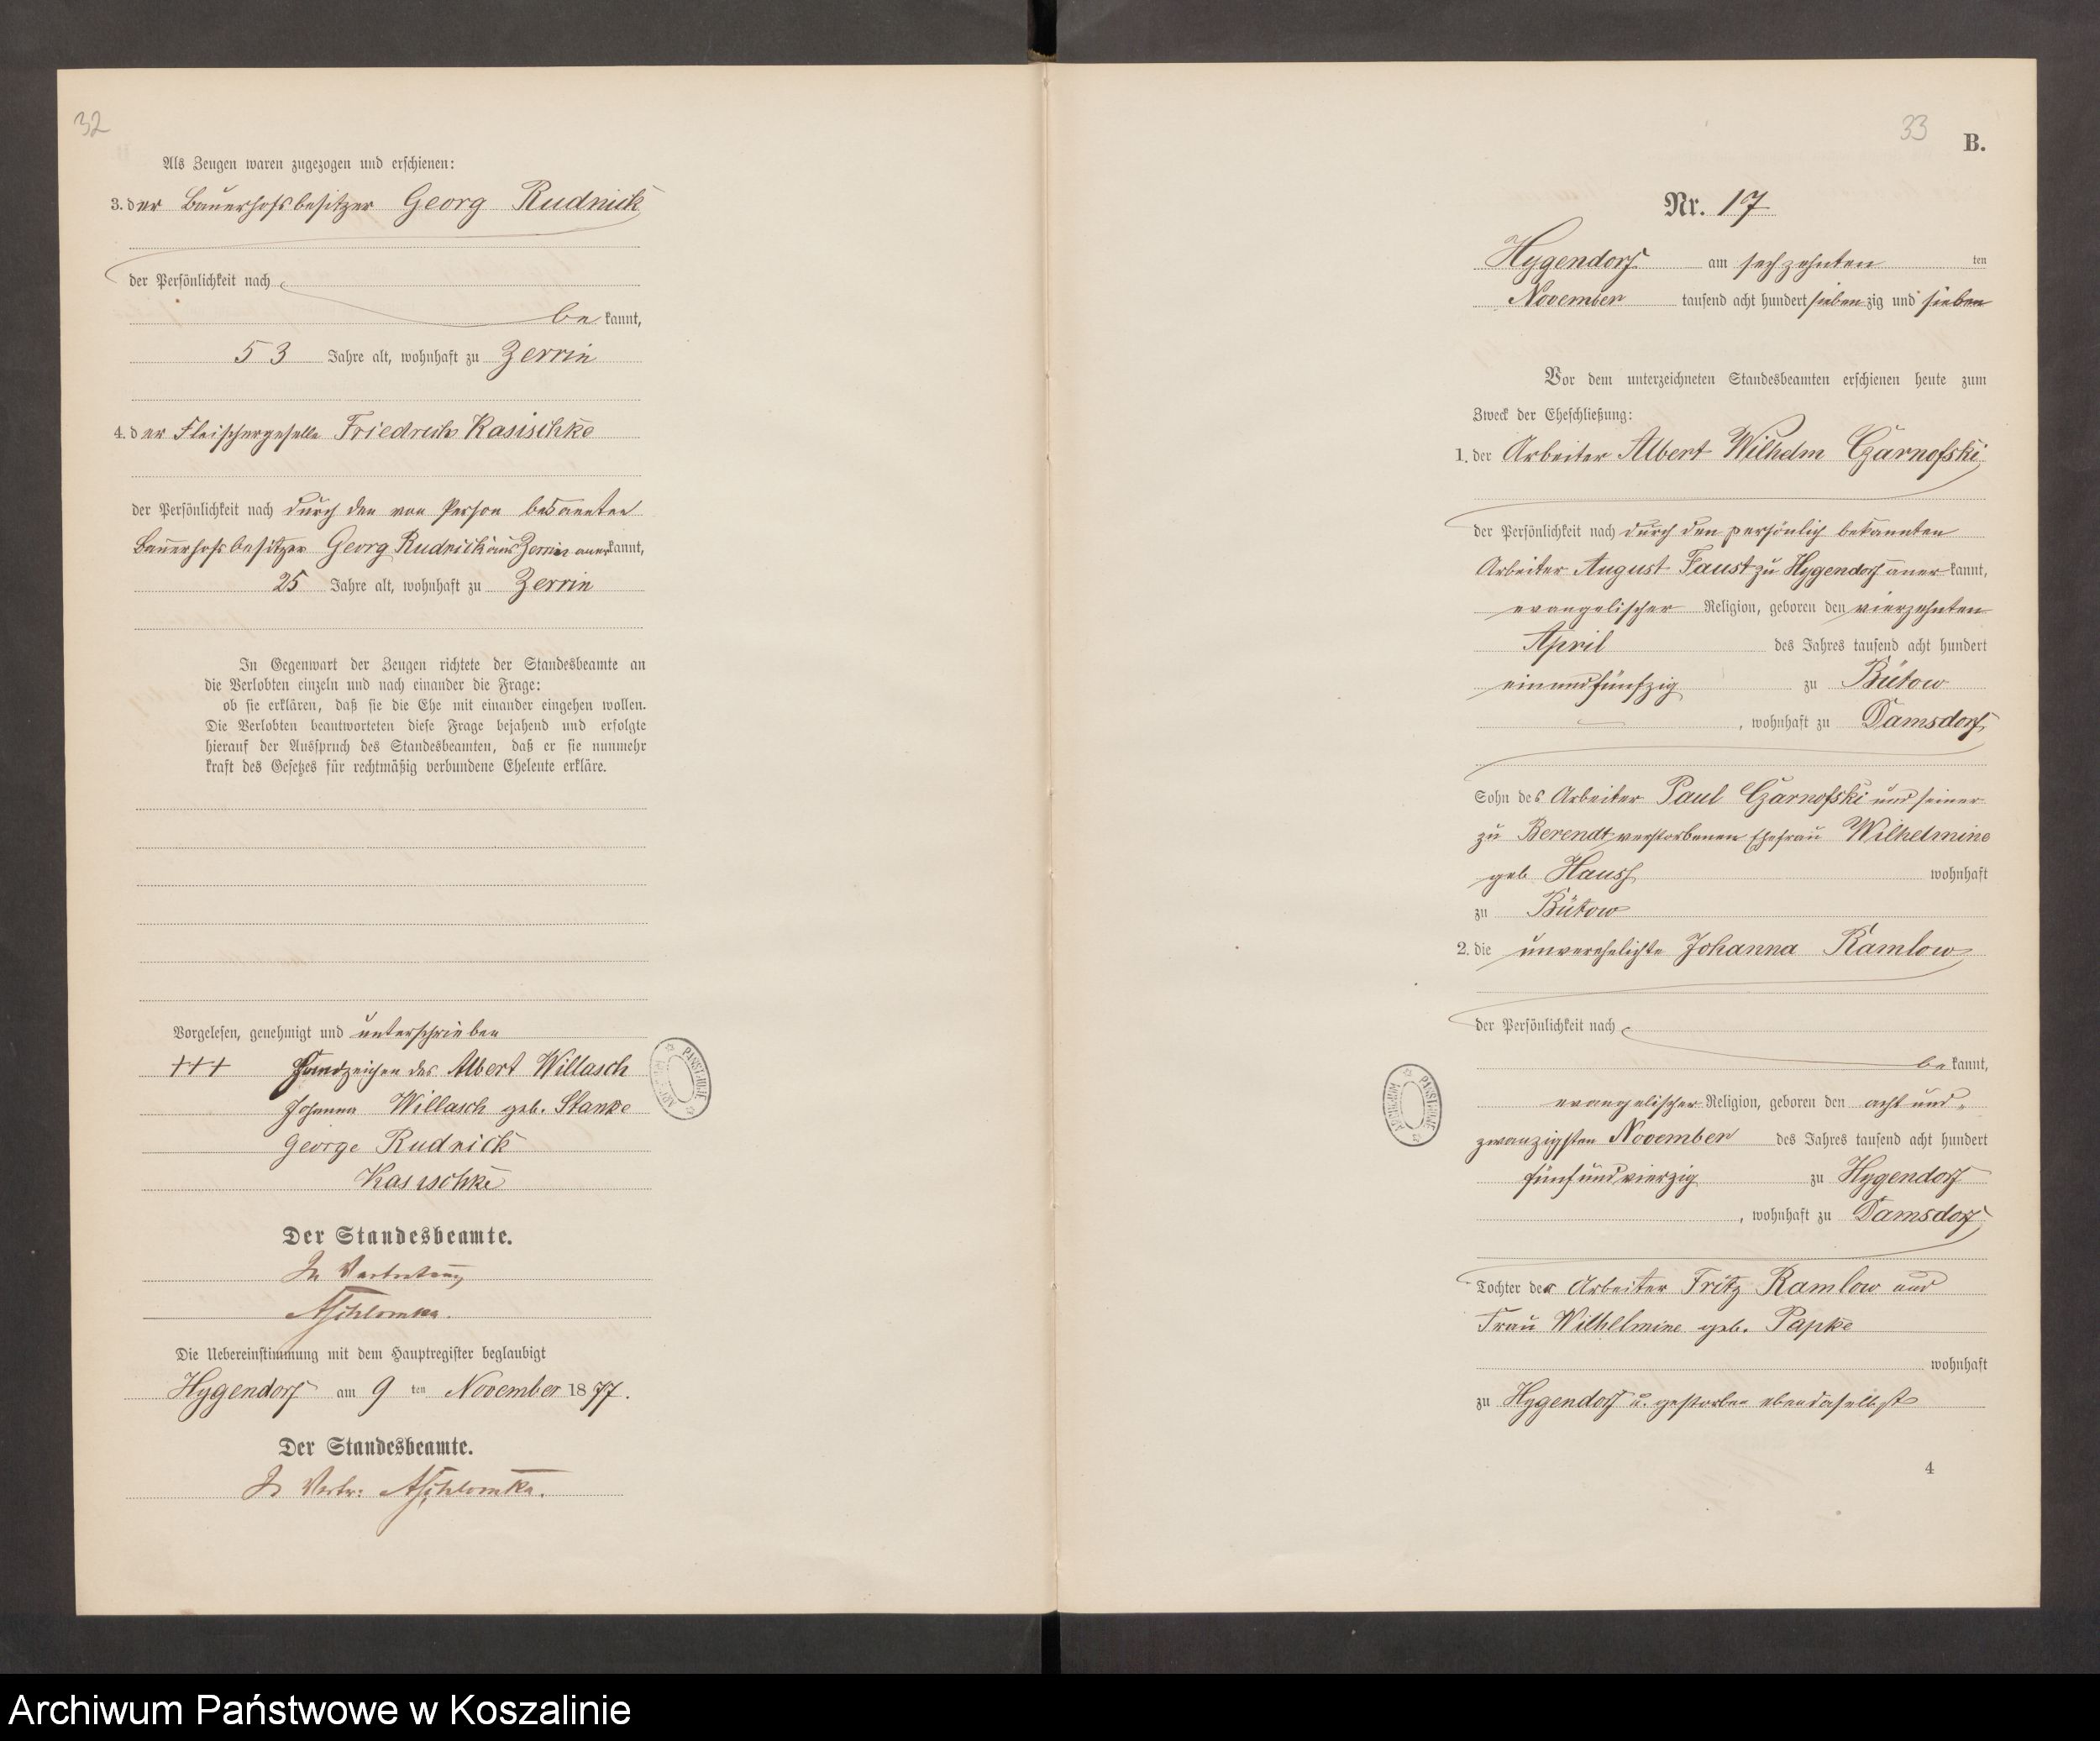 32
Als Zeugen waren zugezogen und erschienen:
3. der Bauerhofsbesitzer Georg Rudnick
der Persönlichkeit nach
be kannt,
53 Jahre alt, wohnhaft zu Zerrin
4. der Fleischergeselle Friedrich Kasischke
der Persönlichkeit nach durch den von Person bekannten
Bauerhofsbesitzer Georg Rudnick aus Zerrin anerkannt,
25 Jahre alt, wohnhaft zu Zerrin
In Gegenwart der Zeugen richtete der Standesbeamte an
die Verlobten einzeln und nach einander die Frage:
ob sie erklären, daß sie die Ehe mit einander eingehen wollen.
Die Verlobten beantworteten diese Frage bejahend und erfolgte
hierauf der Ausspruch des Standesbeamten, daß er sie nunmehr
kraft des Gesetzes für rechtmäßig verbundene Eheleute erkläre.
Vorgelesen, genehmigt und unterschrieben
+++ Handzeichen des Albert Willasch
Johanna Willasch geb. Stanke
George Rudnick
Kasischke
Der Standesbeamte.
In Vertretung
Die Uebereinstimmung mit dem Hauptregister beglaubigt
Hygendorf am 9 ten November 1877.
Der Standesbeamte.
In Vertr:
33
B.
Nr. 17
Hygendorf am sechzehnten ten
November tausend acht hundert siebenzig und sieben
Vor dem unterzeichneten Standesbeamten erschienen heute zum
Zweck der Eheschließung:
1. der Arbeiter Albert Wilhelm Czarnofski
der Persönlichkeit nach durch den persönlich bekannten
Arbeiter August Faust zu Hygendorf anerkannt,
evangelischer Religion, geboren den vierzehnten
April des Jahres tausend acht hundert
einundfünfzig zu Bütow
, wohnhaft zu Damsdorf
Sohn des Arbeiter Paul Czarnofski und seiner
zu Berendt verstorbenen Ehefrau Wilhelmine
geb Hausch wohnhaft
zu Bütow
2. die unverehelichte Johanna Ramlow
der Persönlichkeit nach
be kannt,
evangelischer Religion, geboren den acht und
zwanzigsten November des Jahres tausend acht hundert
fünfundvierzig zu Hygendorf
, wohnhaft zu Damsdorf
Tochter der Arbeiter Fritz Ramlow und
Frau Wilhelmine geb. Papke
wohnhaft
zu Hygendorf u. gestorben ebendaselbst
4
ARCHIWUM PAŃSTWOWE
ARCHIWUM PAŃSTWOWE
Archiwum Państwowe w Koszalinie